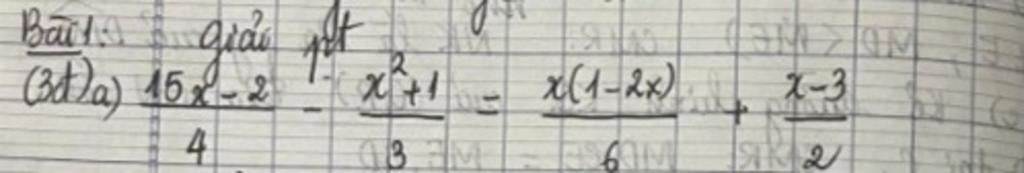 Bài 1. giải pt
(3đ) a) (15x - 2)/4 - (x² + 1)/3 = x(1 - 2x)/6 + (x - 3)/2